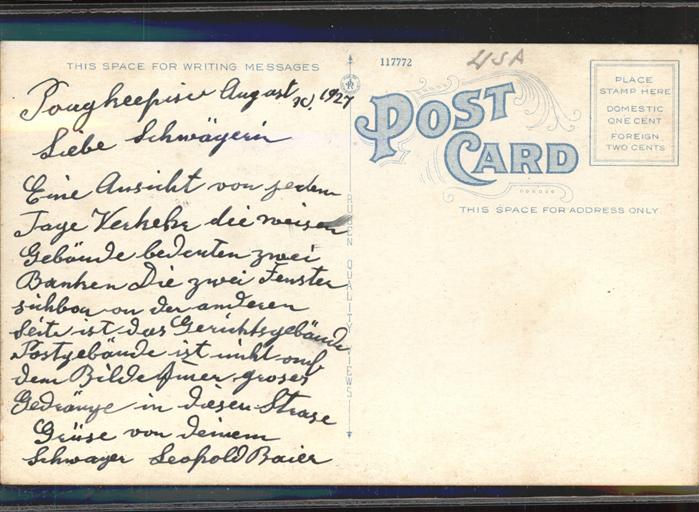 THIS SPACE FOR WRITING MESSAGES
117772
USA
POST CARD
PLACE
STAMP HERE
DOMESTIC
ONE CENT
FOREIGN
TWO CENTS
THIS SPACE FOR ADDRESS ONLY
Poughkeepise August 10. 1927
Liebe Schwägerin
Eine Ansicht von jedem
Tage Verkehr die weisen
Gebäude bedeuten zwei
Banken Die zwei Fenster
sichbar on der anderen
Seite ist das Gerichtsgebäude
Postgebäude ist nicht auf
dem Bilde Imer groses
Gedränge in dieser Strase
Grüse von deinem
Schwager Leopold Baier
QUALITY VIEWS